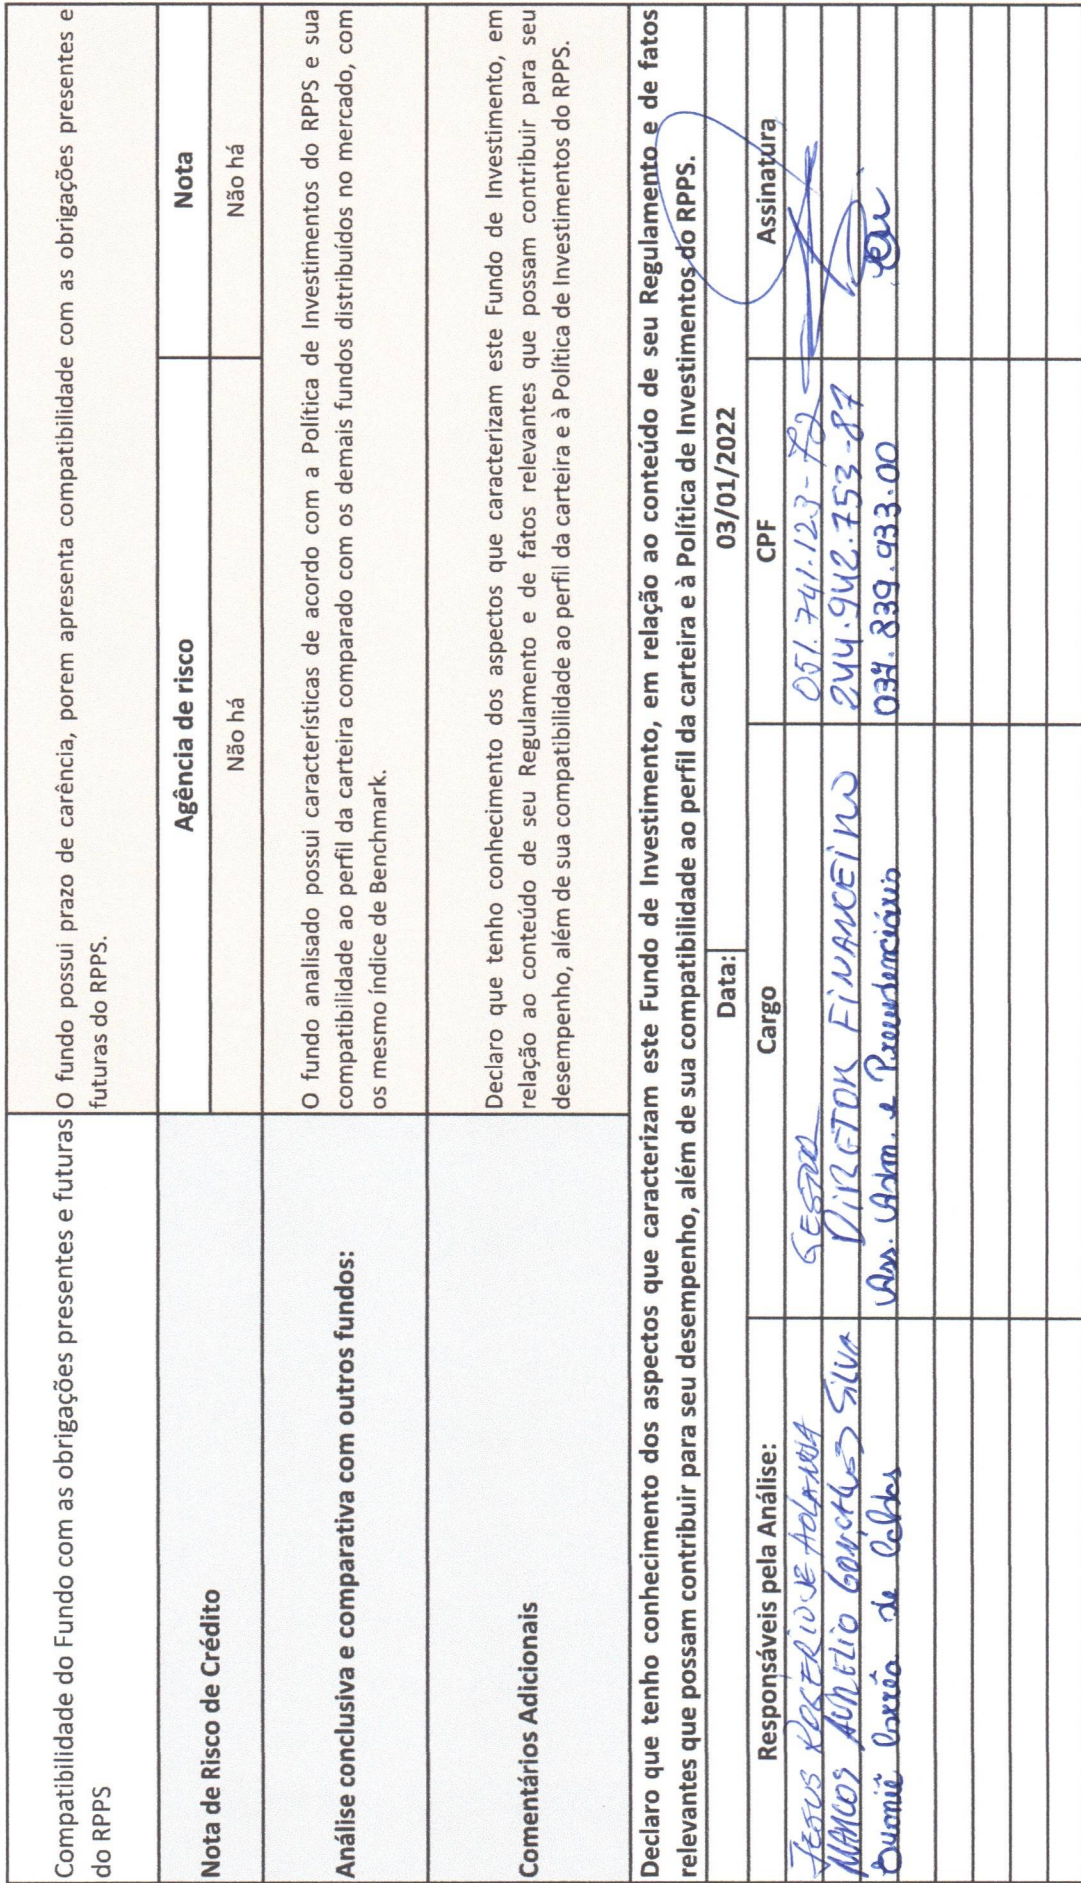 Compatibilidade do Fundo com as obrigações presentes e futuras
do RPPS
O fundo possui prazo de carência, porem apresenta compatibilidade com as obrigações presentes e
futuras do RPPS.
Nota de Risco de Crédito
Agência de risco
Nota
Não há
Não há
Análise conclusiva e comparativa com outros fundos:
O fundo analisado possui características de acordo com a Política de Investimentos do RPPS e sua
compatibilidade ao perfil da carteira comparado com os demais fundos distribuídos no mercado, com
os mesmo índice de Benchmark.
Comentários Adicionais
Declaro que tenho conhecimento dos aspectos que caracterizam este Fundo de Investimento, em
relação ao conteúdo de seu Regulamento e de fatos relevantes que possam contribuir para seu
desempenho, além de sua compatibilidade ao perfil da carteira e à Política de Investimentos do RPPS.
Declaro que tenho conhecimento dos aspectos que caracterizam este Fundo de Investimento, em relação ao conteúdo de seu Regulamento e de fatos
relevantes que possam contribuir para seu desempenho, além de sua compatibilidade ao perfil da carteira e à Política de Investimentos do RPPS.
Data:
03/01/2022
Responsáveis pela Análise:
Cargo
CPF
Assinatura
JESUS ROGÉRIO DE HOLANDA GESTOR 051.741.123-72
MARCOS AURELIO GONÇALVES SILVA DIRETOR FINANCEIRO 244.942.753-87
Corrêa de Caldas Ass. Adm. e Previdenciário 037.839.933.00